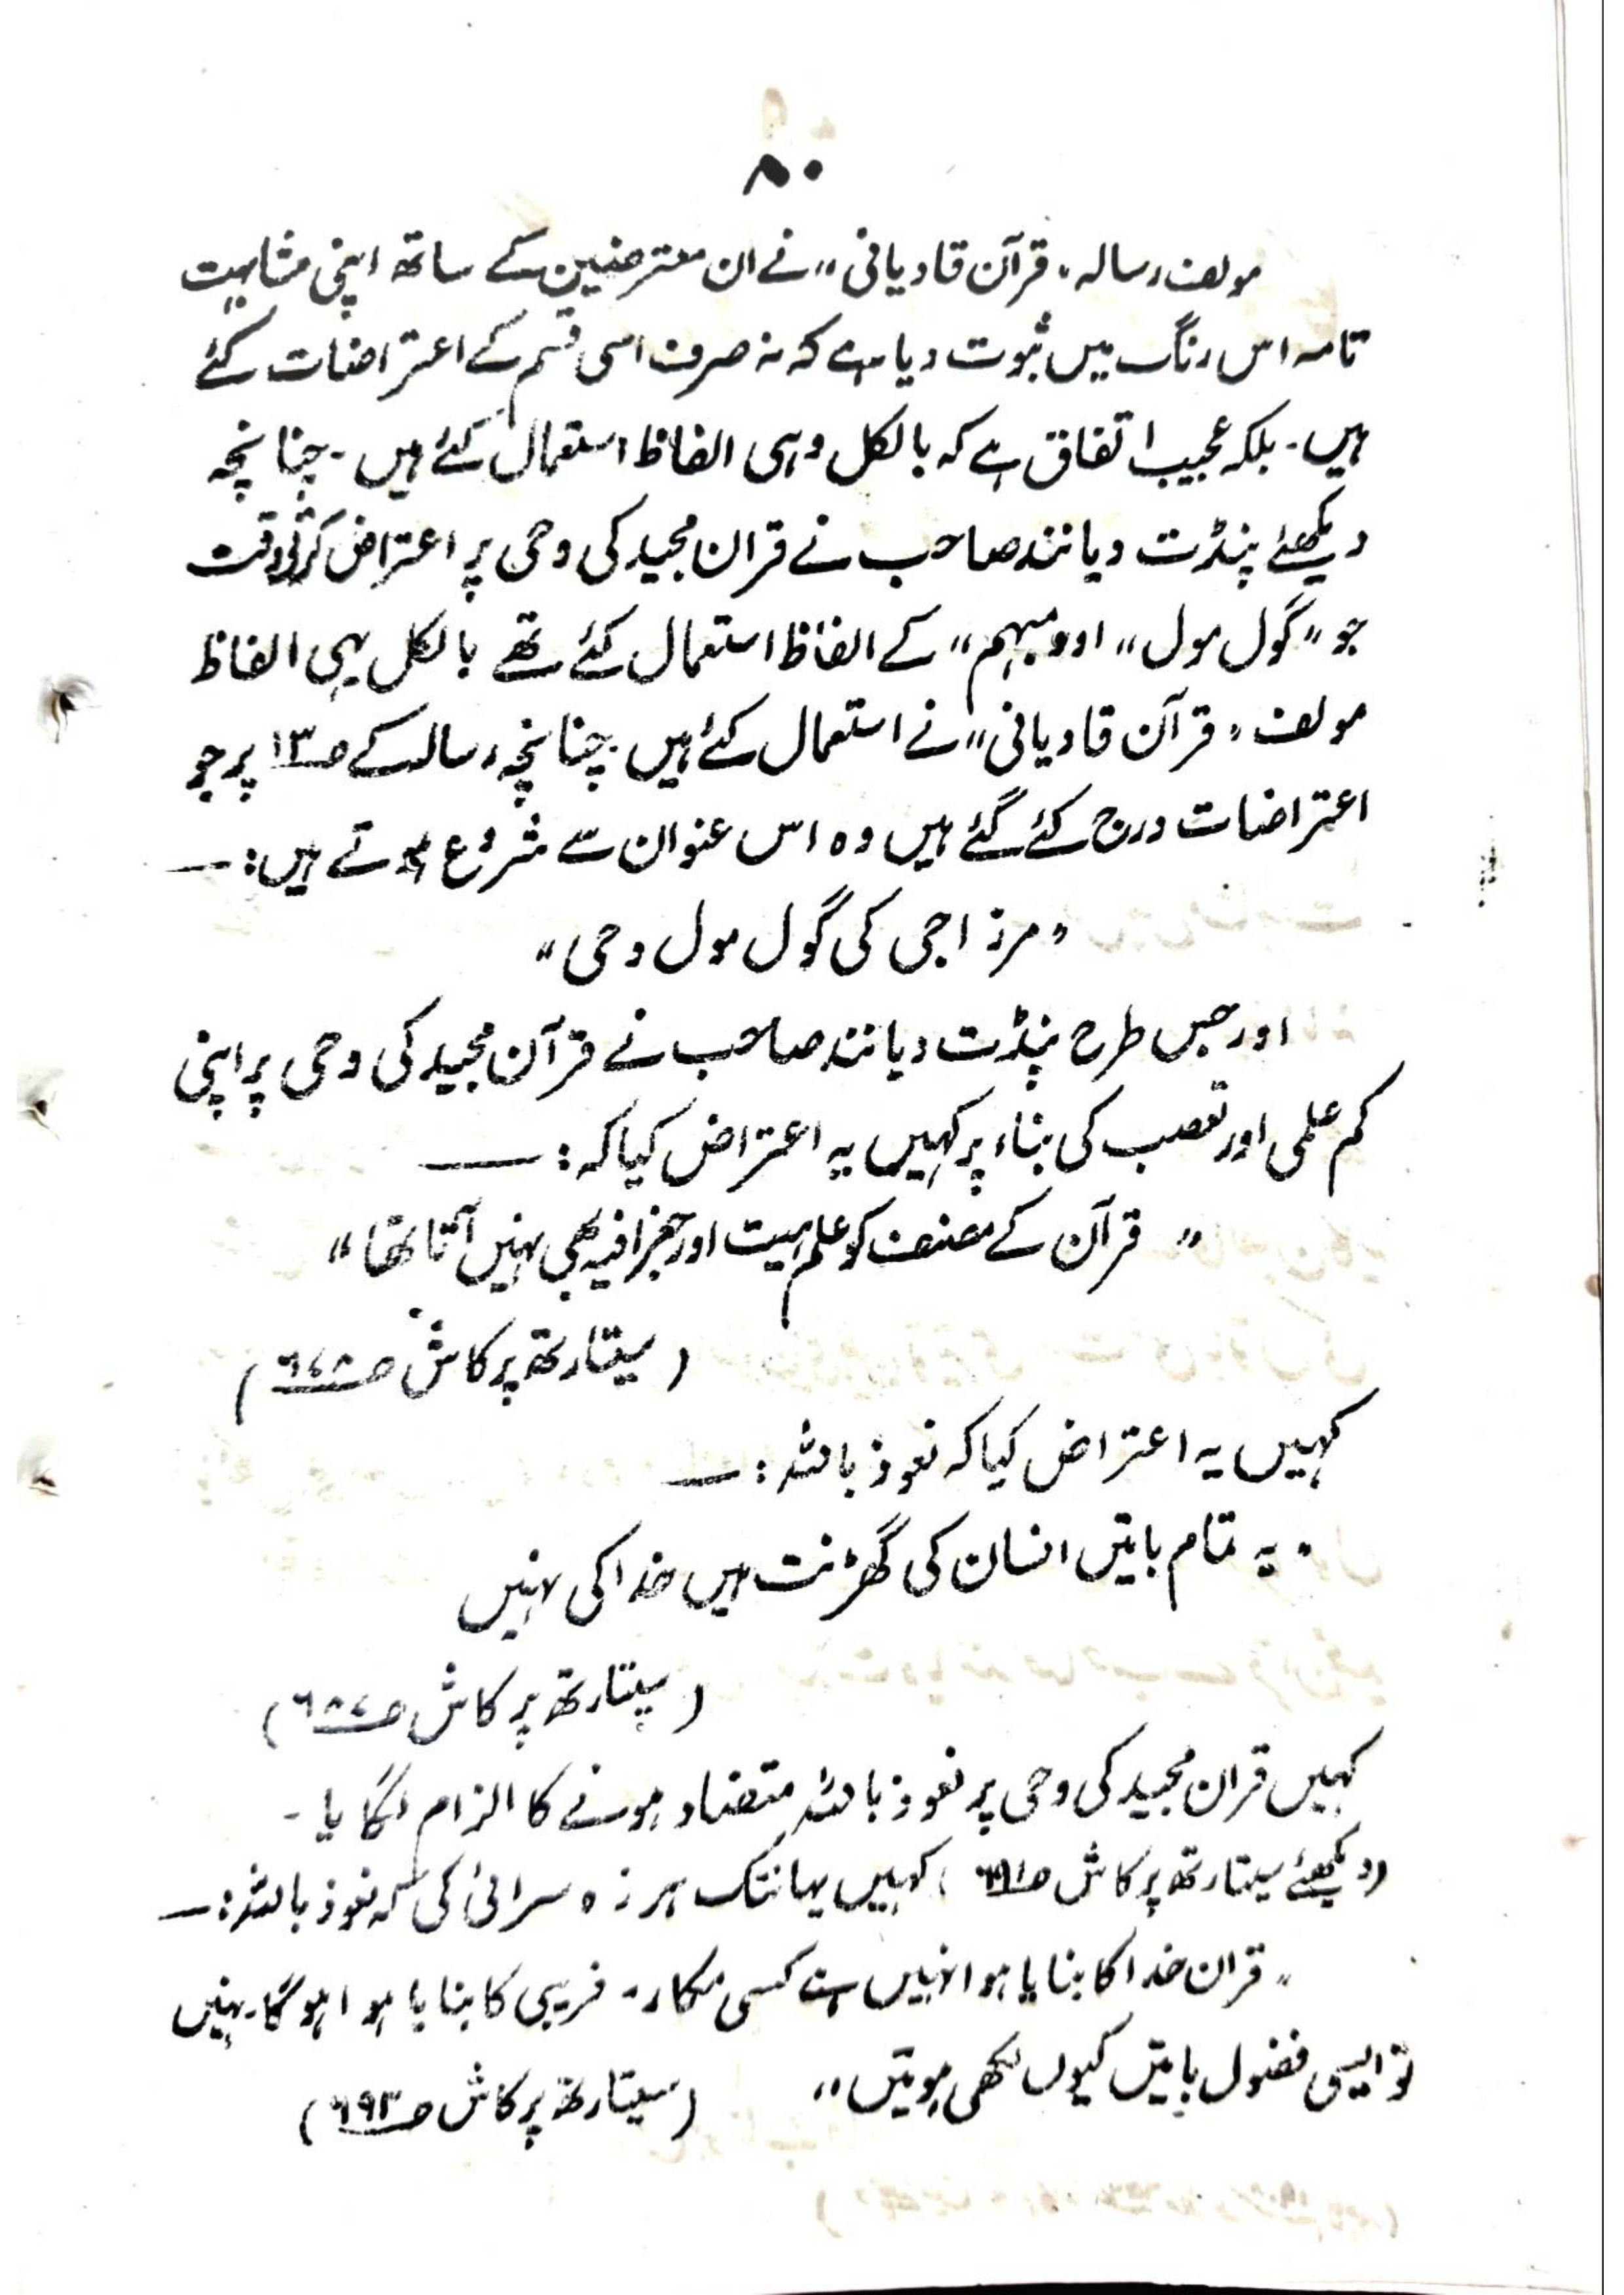 ۸۰
مولف رسالہ "قرآن قادیانی" نے ان معترضین کے ساتھ اپنی مشابہت
تامہ اس رنگ میں ثبوت دیا ہے کہ نہ صرف اسی قسم کے اعتراضات کئے
ہیں۔ بلکہ عجیب اتفاق ہے کہ بالکل وہی الفاظ استعمال کئے ہیں۔ چنانچہ
دیکھئے پنڈت دیانند صاحب نے قران مجید کی وحی پر اعتراض کرتے وقت
جو "گول مول" اور مبہم" کے الفاظ استعمال کئے تھے بالکل یہی الفاظ
مولف "قرآن قادیانی" نے استعمال کئے ہیں۔ چنانچہ رسالہ کے ص۱۳ پر جو
اعتراضات درج کئے گئے ہیں وہ اس عنوان سے شروع ہوتے ہیں:—
"مرزا جی کی گول مول وحی"
اور جس طرح پنڈت دیانند صاحب نے قرآن مجید کی وحی پر اپنی
کم علمی اور تعصب کی بناء پر کہیں یہ اعتراض کیا کہ:—
"قرآن کے مصنف کو علم ہیت اور جغرافیہ بھی نہیں آتا تھا"
(سیتارتھ پرکاش ص۶۷۸)
کہیں یہ اعتراض کیا کہ نعوذ باللہ:—
"یہ تمام باتیں انسان کی گھڑنت ہیں خدا کی نہیں
(سیتارتھ پرکاش ص۶۸۷)
کہیں قران مجید کی وحی پر نعوذ باللہ متضاد ہونے کا الزام لگایا۔
(دیکھئے سیتارتھ پرکاش ص۶۹۱) کہیں یہانتک ہرزہ سرائی کی کہ نعوذ باللہ:—
"قران خدا کا بنایا ہوا نہیں ہے کسی مکار۔ فریبی کا بنایا ہوا ہوگا۔ نہیں
تو ایسی فضول باتیں کیوں لکھی ہوتیں" (سیتارتھ پرکاش ص۶۹۳)